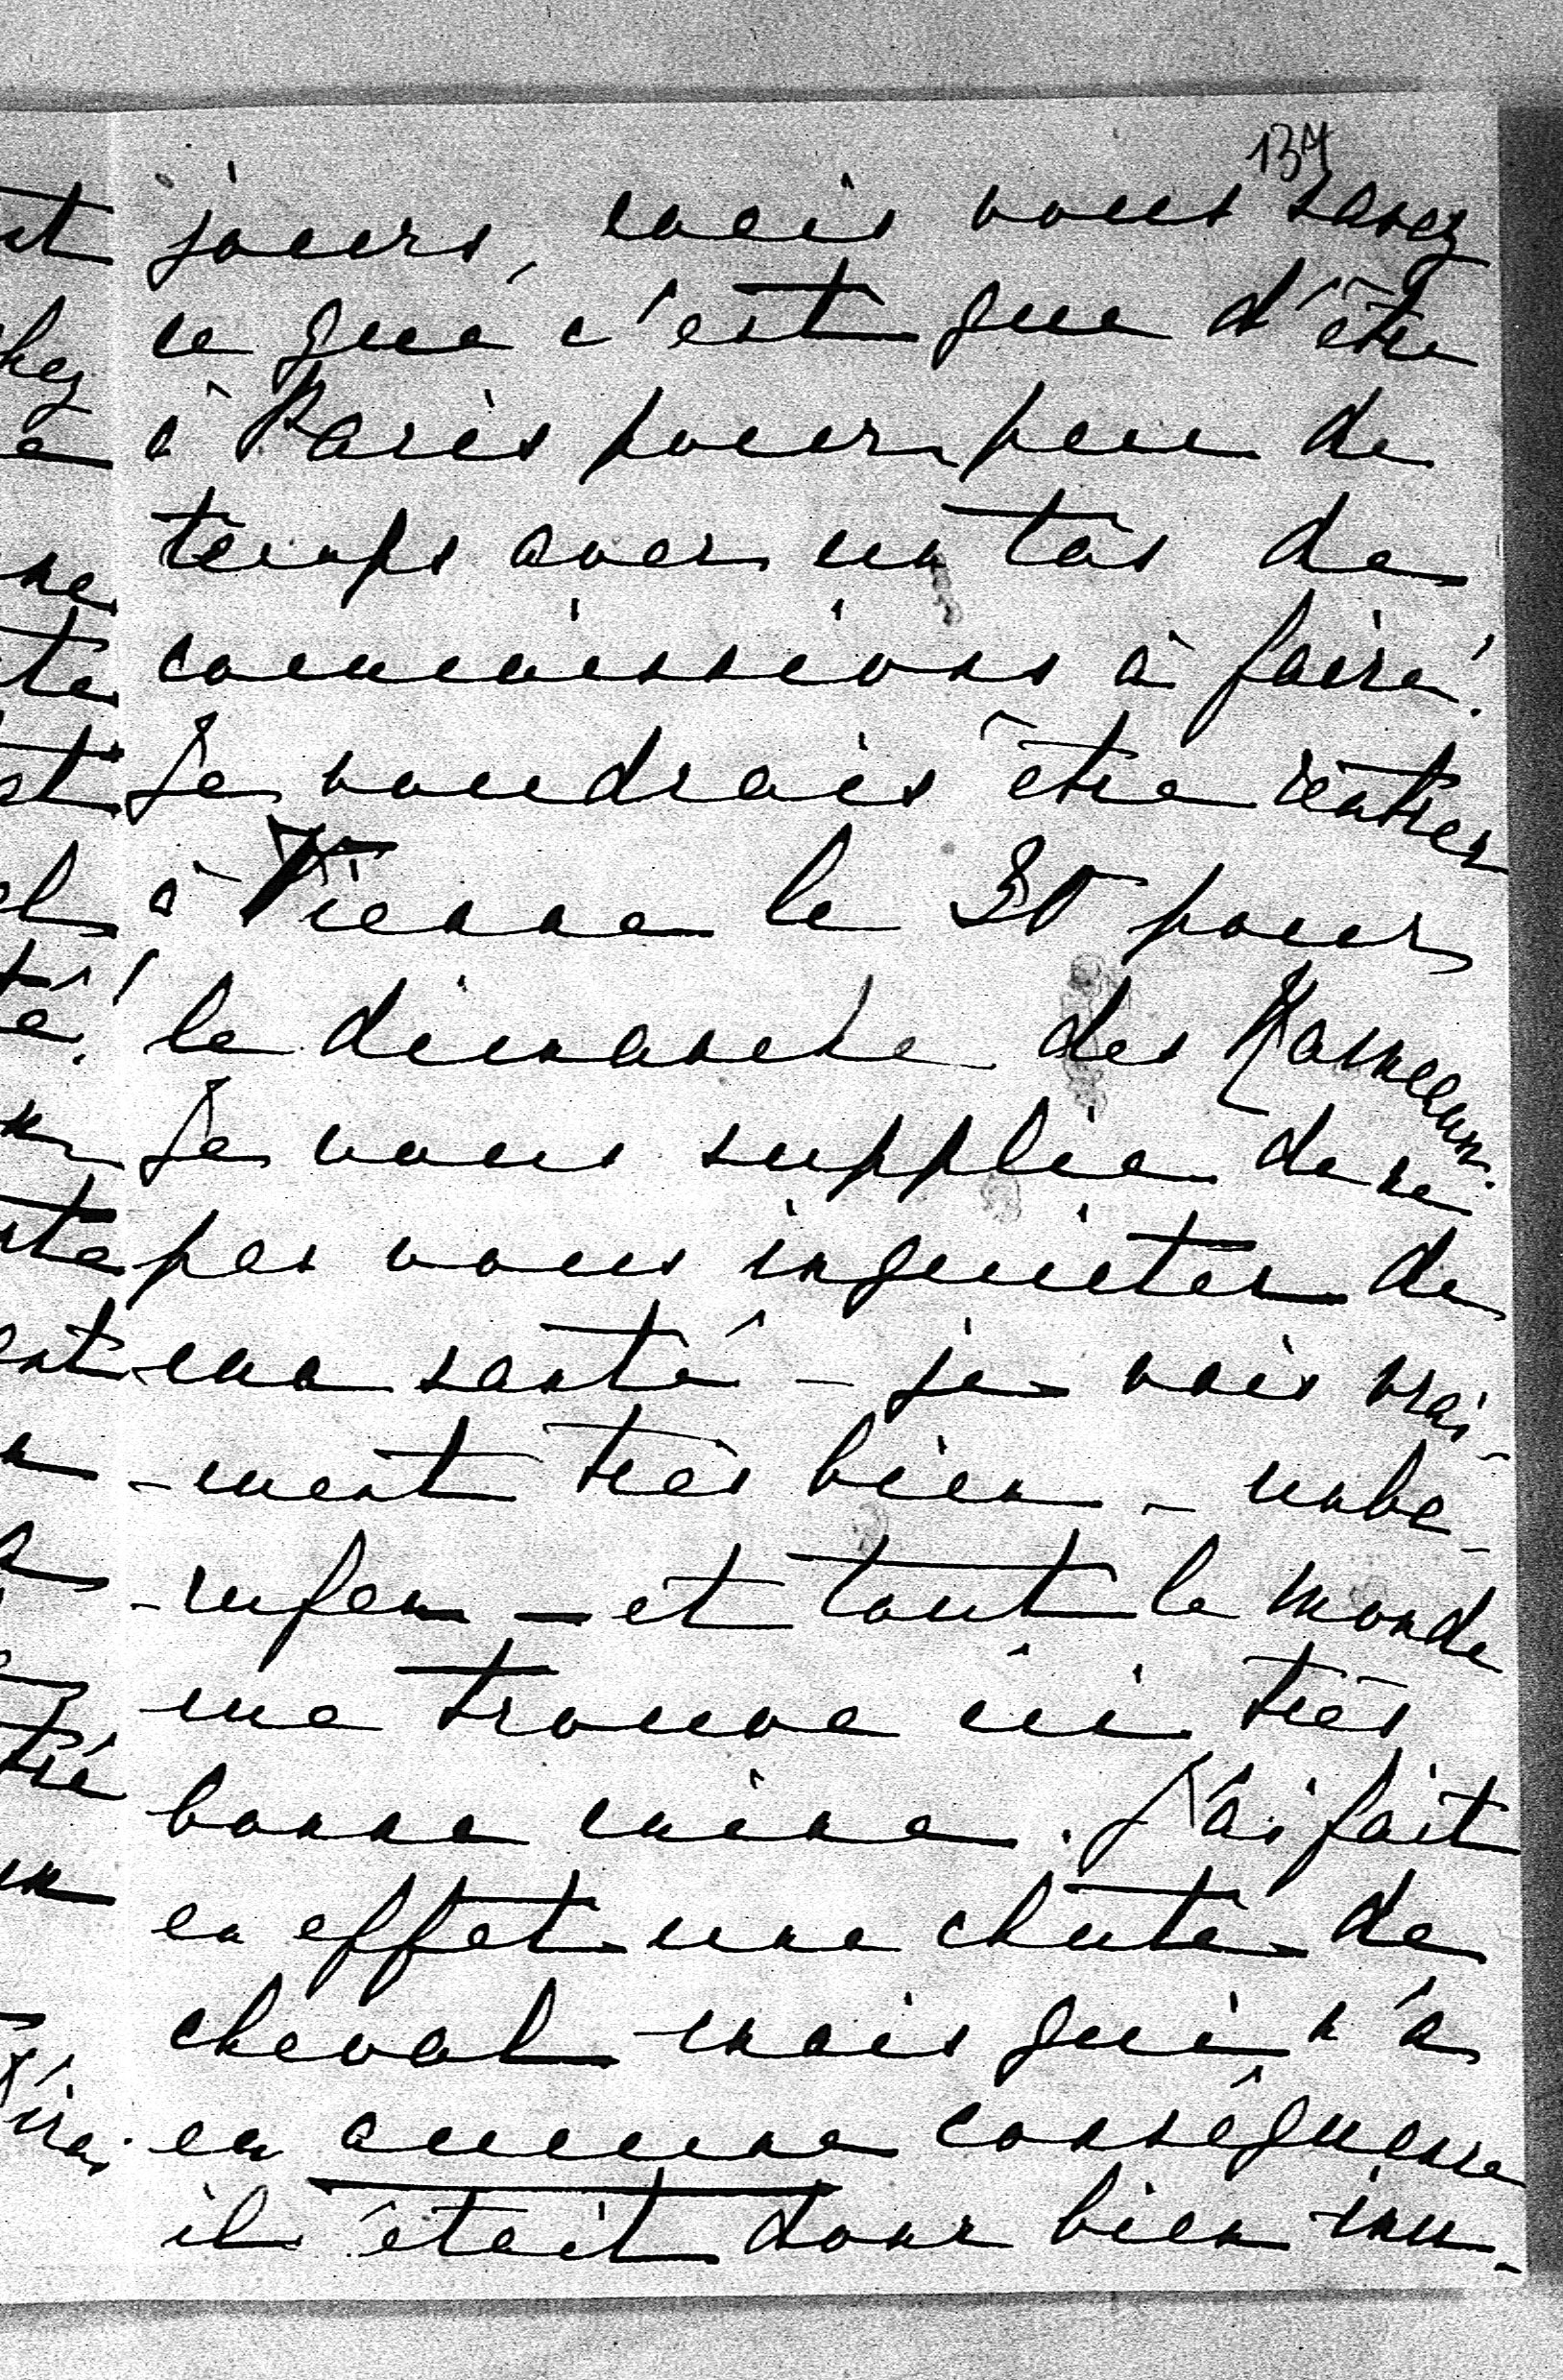 137
jours, mais vous savez
ce que c'est que d'être
à Paris pour peu de
temps avec un tas de
commissions à faire!
Je voudrais être rentrée
à Vienne le 30 pour
le dimanche des Rameaux.
Je vous supplie de ne
pas vous inquieter de
ma santé - je vais vrai-
-ment très bien - unbe-
-rufen - et tout le monde
me trouve ici très
bonne mine. J'ai fait
en effet une chute de
cheval mais qui n'a
eu aucune conséquence
il était donc bien inu-